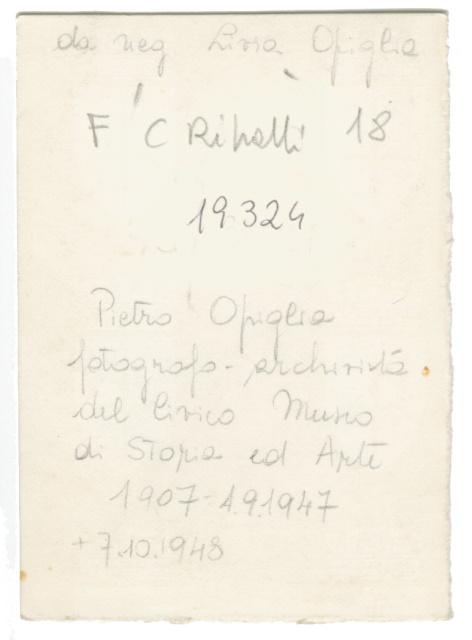 da neg Livia Opiglia
F C Ritratti 18
19324
Pietro Opiglia
fotografo-archivista
del Civico Museo
di Storia ed Arte
1907-1.9.1947
+7.10.1948